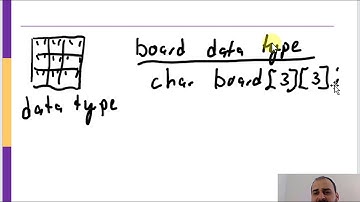 board data type
char board[3][3];
data type